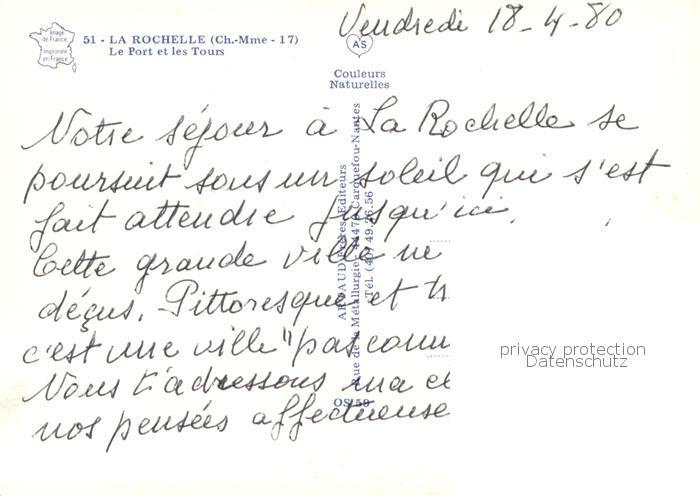 Vendredi 18-4-80
Image
de France,
Imprimée
en France
51 - LA ROCHELLE (Ch.-Mme - 17)
Le Port et les Tours
AS
Couleurs
Naturelles
Notre séjour à La Rochelle se
poursuit sous un soleil qui s'est
fait attendre jusqu'ici.
Cette grande ville
déçus. Pittoresque et
c'est une ville "pas
Nous t'adressons ma
nos pensées affectueuse
ARTAUD Frères, Editeurs
Rue de la Métallurgie, 44470 Carquefou-Nantes
Tél. (40) 49.26.56
OS 59
privacy protection
Datenschutz